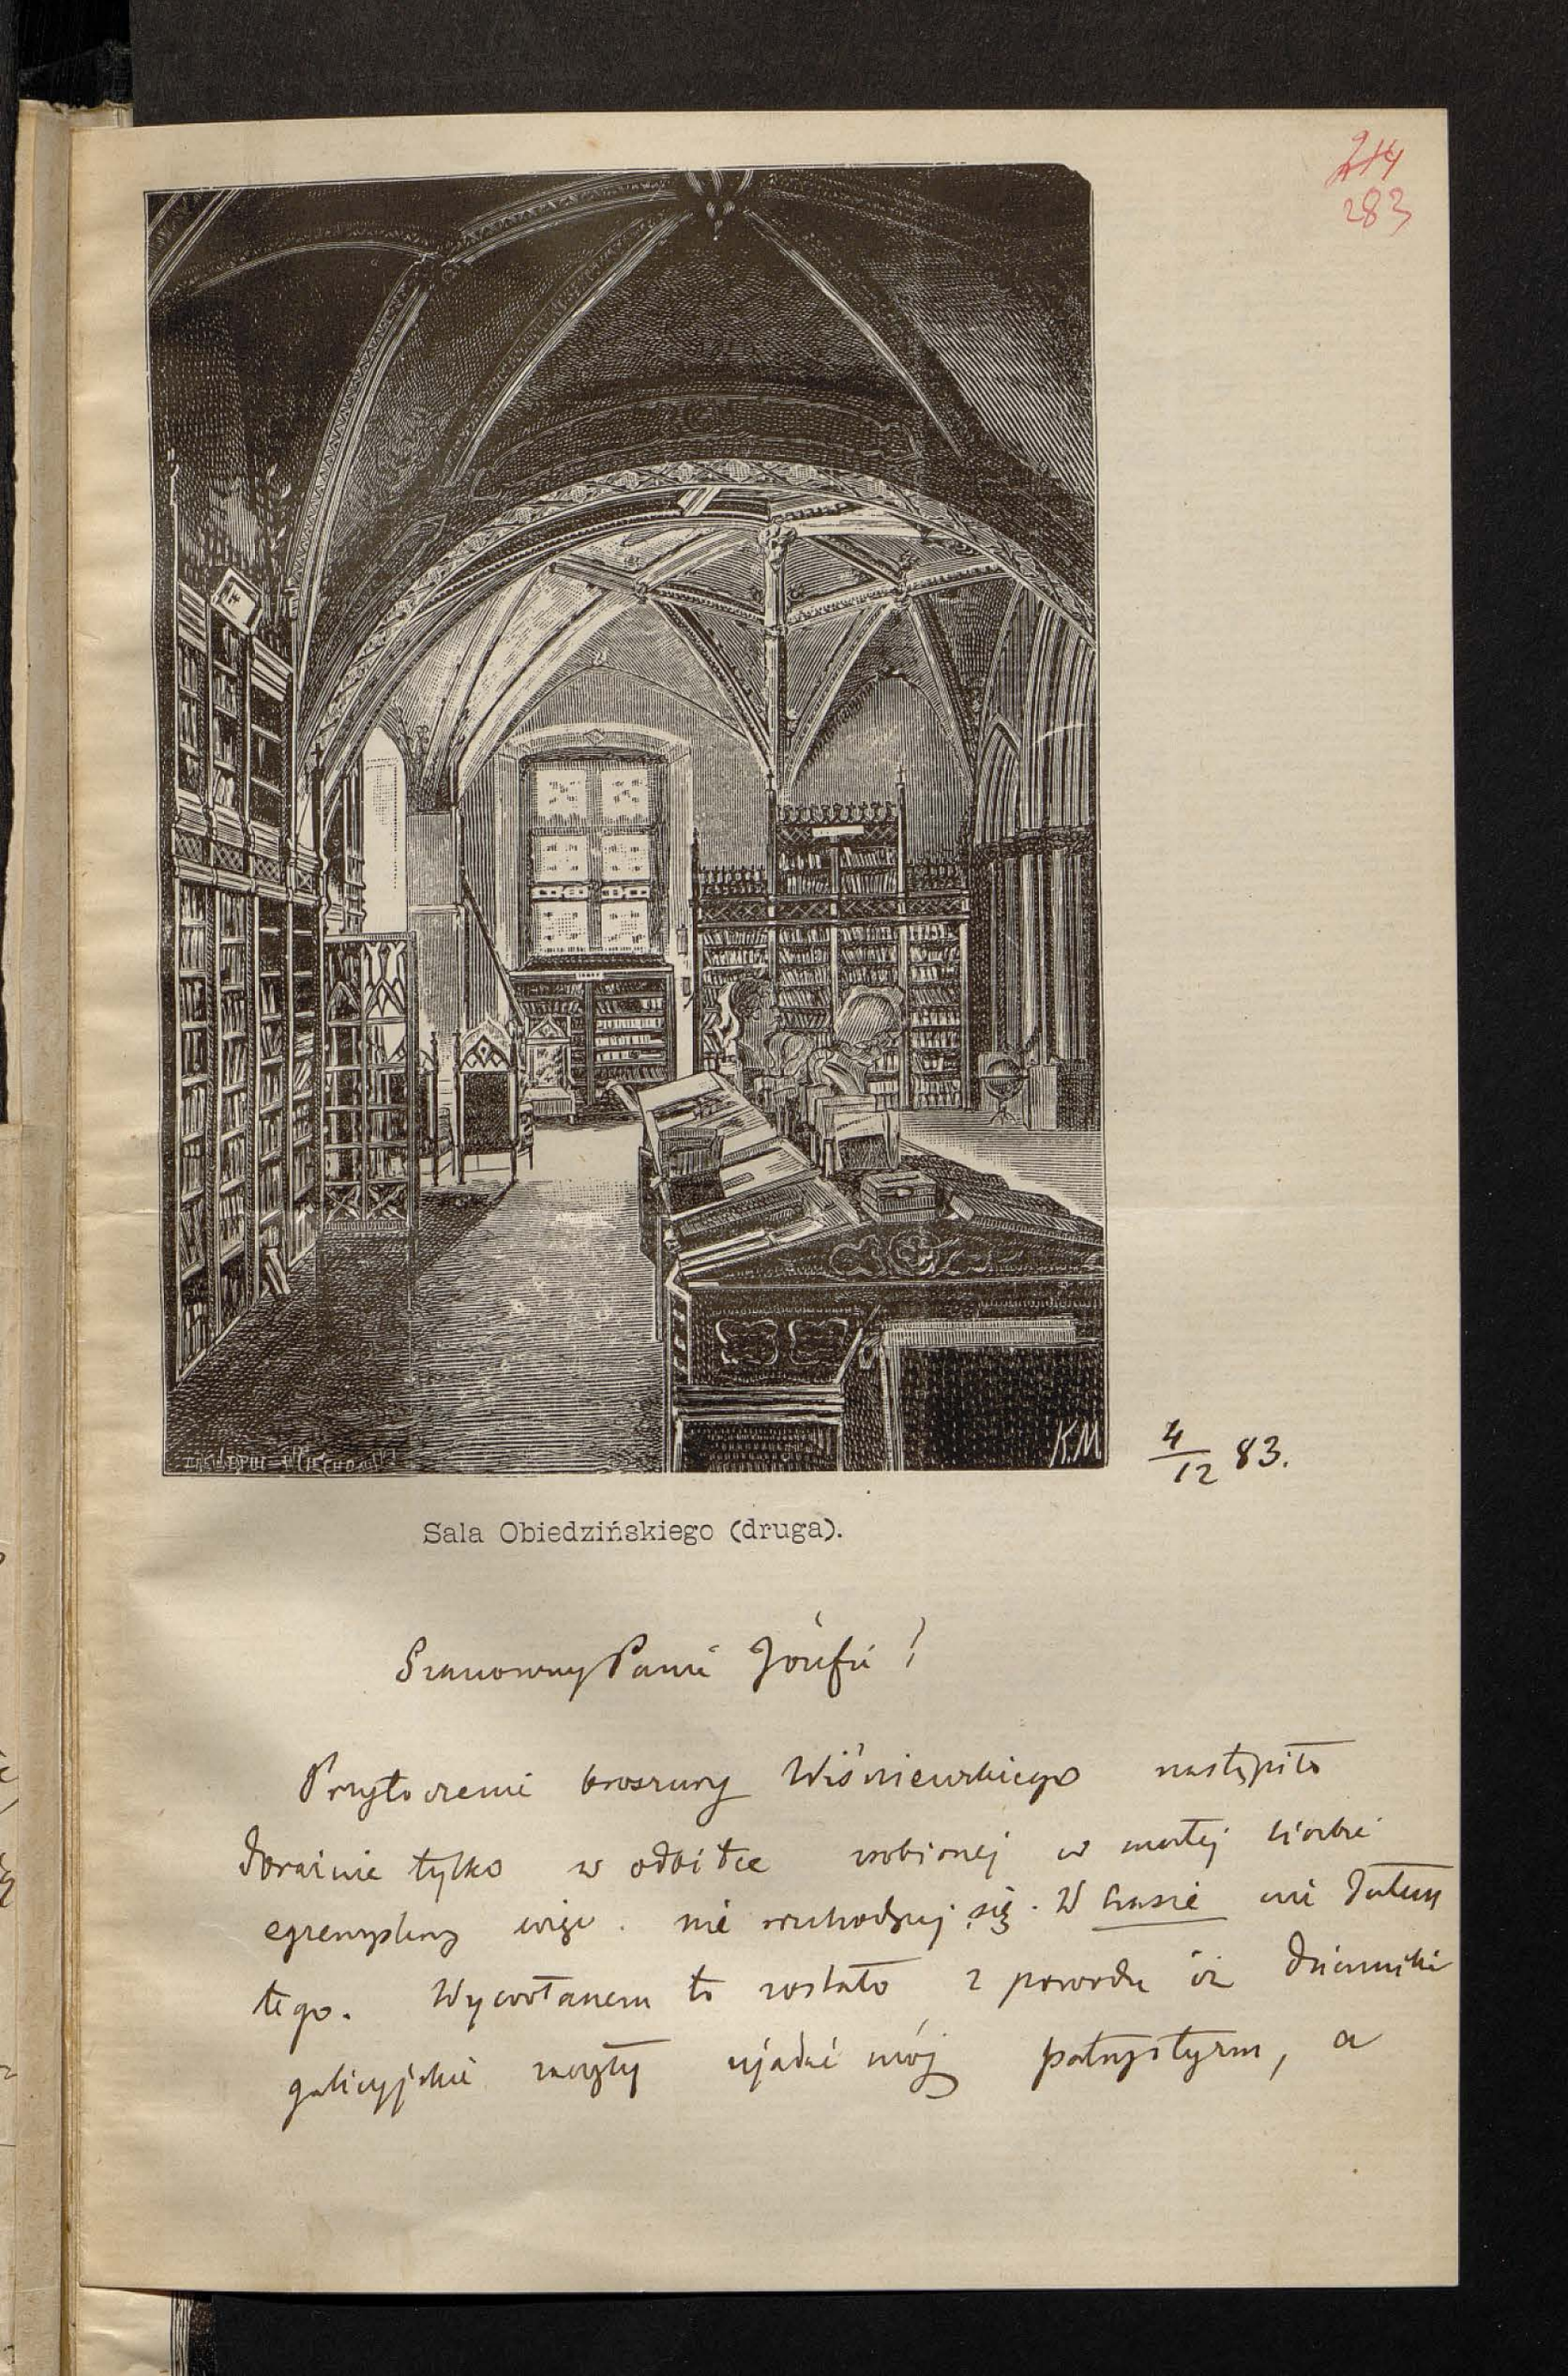 214
283
K.M
4/12 83.
Sala Obiedzińskiego (druga).
Szanowny Panie Józefie!
Przytoczenie broszury Wiśniewskiego nastąpiło
doraźnie tylko w odbitce zrobionej w małej liczbie
egzemplarzy więc nie rozchodzącej się. W Czasie nie dałem
tego. Wywołanem to zostało z powodu iż dzienniki
galicyjskie zaczęły ujadać mój patryotyzm, a